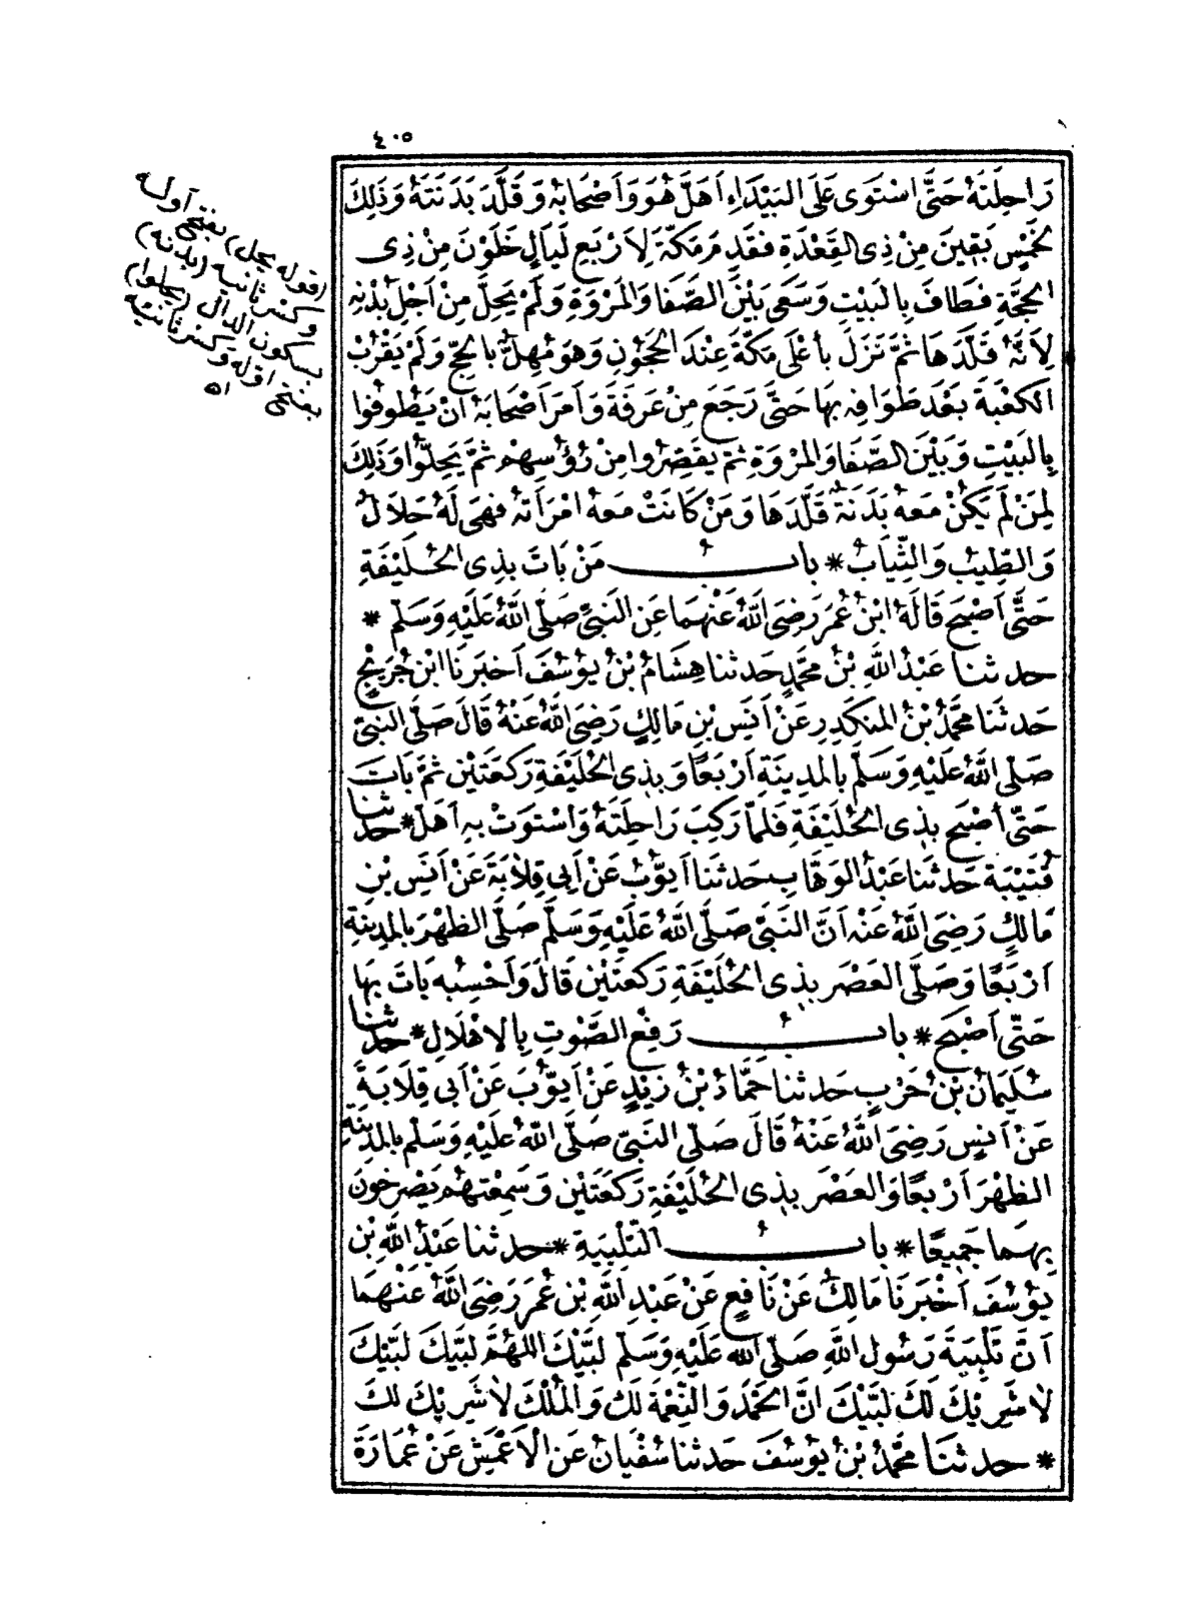 ٤٠٥
رَاحِلَتَهُ حَتَّى اسْتَوَى عَلَى البَيْدَاءِ اَهَلَّ هُوَ وَاَصْحَابُهُ وَقَلَّدَ بَدَنَتَهُ وَذَلِكَ
لِخَمْسٍ بَقِينَ مِنْ ذِى القَعْدَةِ فَقَدِمَ مَكَّةَ لِاَرْبَعِ لَيَالٍ خَلَوْنَ مِنْ ذِى
الحِجَّةِ فَطَافَ بِالبَيْتِ وَسَعَى بَيْنَ الصَّفَا وَالمَرْوَةِ وَلَمْ يَحِلَّ مِنْ اَجْلِ بُدْنِهِ
لِاَنَّهُ قَلَّدَهَا ثُمَّ نَزَلَ بِأَعْلَى مَكَّةَ عِنْدَ الحَجُونِ وَهُوَ مُهِلٌّ بِالحَجِّ وَلَمْ يَقْرُبْ
الكَعْبَةَ بَعْدَ طَوَافِهِ بِهَا حَتَّى رَجَعَ مِنْ عَرَفَةَ وَاَمَرَ اَصْحَابَهُ اَنْ يَطُوفُوا
بِالبَيْتِ وَبَيْنَ الصَّفَا وَالمَرْوَةِ ثُمَّ يُقَصِّرُوا مِنْ رُؤُسِهِمْ ثُمَّ يَحِلُّوا وَذَلِكَ
لِمَنْ لَمْ يَكُنْ مَعَهُ بَدَنَةٌ قَلَّدَهَا وَمَنْ كَانَتْ مَعَهُ امْرَأَتُهُ فَهِىَ لَهُ حَلَالٌ
وَالطِّيبُ وَالثِّيَابُ * بابُ مَنْ بَاتَ بِذِى الحُلَيْفَةِ
حَتَّى اَصْبَحَ قَالَهُ ابْنُ عُمَرَ رَضِىَ اللّٰهُ عَنْهُمَا عَنِ النَبِىِّ صَلَّى اللّٰهُ عَلَيْهِ وَسَلَّمَ *
حدثنا عَبْدُ اللّٰهِ بْنُ مُحَمَّدٍ حَدثنا هِشَامُ بْنُ يُوْسُفَ اَخْبَرَنَا ابْنُ جُرَيْجٍ
حَدثَنا مُحَمَّدُ بْنُ المُنكَدِرِ عَنْ اَنَسِ بْنِ مَالِكٍ رَضِىَ اللّٰهُ عَنْهُ قَالَ صَلَّى النَبِىُّ
صَلَّى اللّٰهُ عَلَيْهِ وَسَلَّمَ بِالمَدِينَةِ اَرْبَعًا وَبِذِى الحُلَيْفَةِ رَكْعَتَيْنِ ثُمَّ بَاتَ
حَتَّى أَصْبَحَ بِذِى الحُلَيْفَةِ فَلَمَّا رَكِبَ رَاحِلَتَهُ وَاسْتَوَتْ بِهِ اَهَلَّ * حدثنا
قُتَيْبَة حَدثنَا عَبْدُ الوَهَّابِ حَدثنَا اَيُّوْبُ عَنْ اَبِى قِلَابَةَ عَنْ اَنَسِ بْنِ
مَالِكٍ رَضِىَ اللّٰهُ عَنْهُ اَنَّ النَبِىَّ صَلَّى اللّٰهُ عَلَيْهِ وَسَلَّمَ صَلَّى الظُهْرَ بِالمَدِينَةِ
اَرْبَعًا وَصَلَّى العَصْرَ بِذِى الحُلَيْفَةِ رَكْعَتَيْنِ قَالَ وَاَحْسِبُهُ بَاتَ بِهَا
حَتَّى اَصْبَحَ * بابُ رَفْعِ الصَّوْتِ بِالاهْلَالِ * حدثنا
سُلَيمَانُ بْنُ حَرْبٍ حَدثنا حَمَّادُ بْنُ زَيْدٍ عَنْ اَيُّوْبَ عَنْ اَبِى قِلَابَةَ
عَنْ اَنَسٍ رَضِىَ اللّٰهُ عَنْهُ قَالَ صَلَّى النَبِىُّ صَلَّى اللّٰهُ عَلَيْهِ وَسَلَّمَ بِالمَدِينَةِ
الظُهْرَ اَرْبَعًا وَالعَصْرَ بِذِى الحُلَيْفَةِ رَكْعَتَيْنِ وَسَمِعْتُهُمْ يَصْرُخُونَ
بِهِمَا جَمِيعًا * بابُ التَلْبِيَةِ * حدثنا عَبْدُ اللّٰهِ بْنُ
يُوْسُفَ اَخْبَرَنَا مَالِكٌ عَنْ نَافِعٍ عَنْ عَبْدِ اللّٰهِ بْنِ عُمَرَ رَضِىَ اللّٰهُ عَنْهُمَا
اَنَّ تَلْبِيَةَ رَسُولِ اللّٰهِ صَلَّى اللّٰهُ عَلَيْهِ وَسَلَّمَ لَبَّيْكَ اللَّهُمَّ لَبَّيْكَ لَبَّيْكَ
لَا شَرِيْكَ لَكَ لَبَّيْكَ اِنَّ الحَمْدَ وَالنِّعْمَةَ لَكَ وَالمُلْكَ لَا شَرِيْكَ لَكَ
* حدثنَا مُحَمَّدُ بْنُ يُوْسُفَ حَدثنا سُفْيَانُ عَنِ الاَعْمَشِ عَنْ عُمَارَةَ
(قوله يحل) بفتح أوله
وكسر ثانيه (بدنه)
بسكون الدال (يحلوا)
بفتح اوله وكسر ثانيه
اه